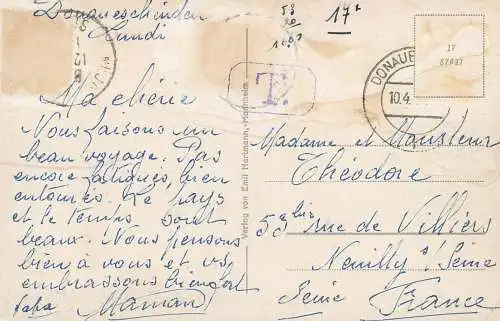 Donaueschinden
Lundi
Ma chérie
Nous faisons un
beau voyage. Pas
encore fatigués, bien
entourés. Le pays
et le temps sont
beaux. Nous pensons
bien à vous et vs
embrassons bien fort
Papa Maman
58
17
T.
Verlag von Emil Hartmann, Mannheim
DONAUE
10.4.
17
67887
Madame et Monsieur
Théodore
53 bis rue de Villiers
Neuilly s/ Seine
Seine France